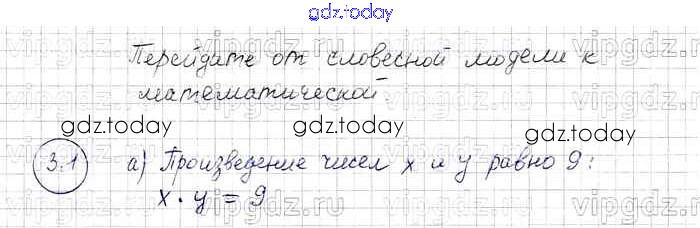 gdz.today
Перейдите от словесной модели к
математической.
gdz.today gdz.today gdz.today
3.1 а) Произведение чисел x и y равно 9:
x · y = 9